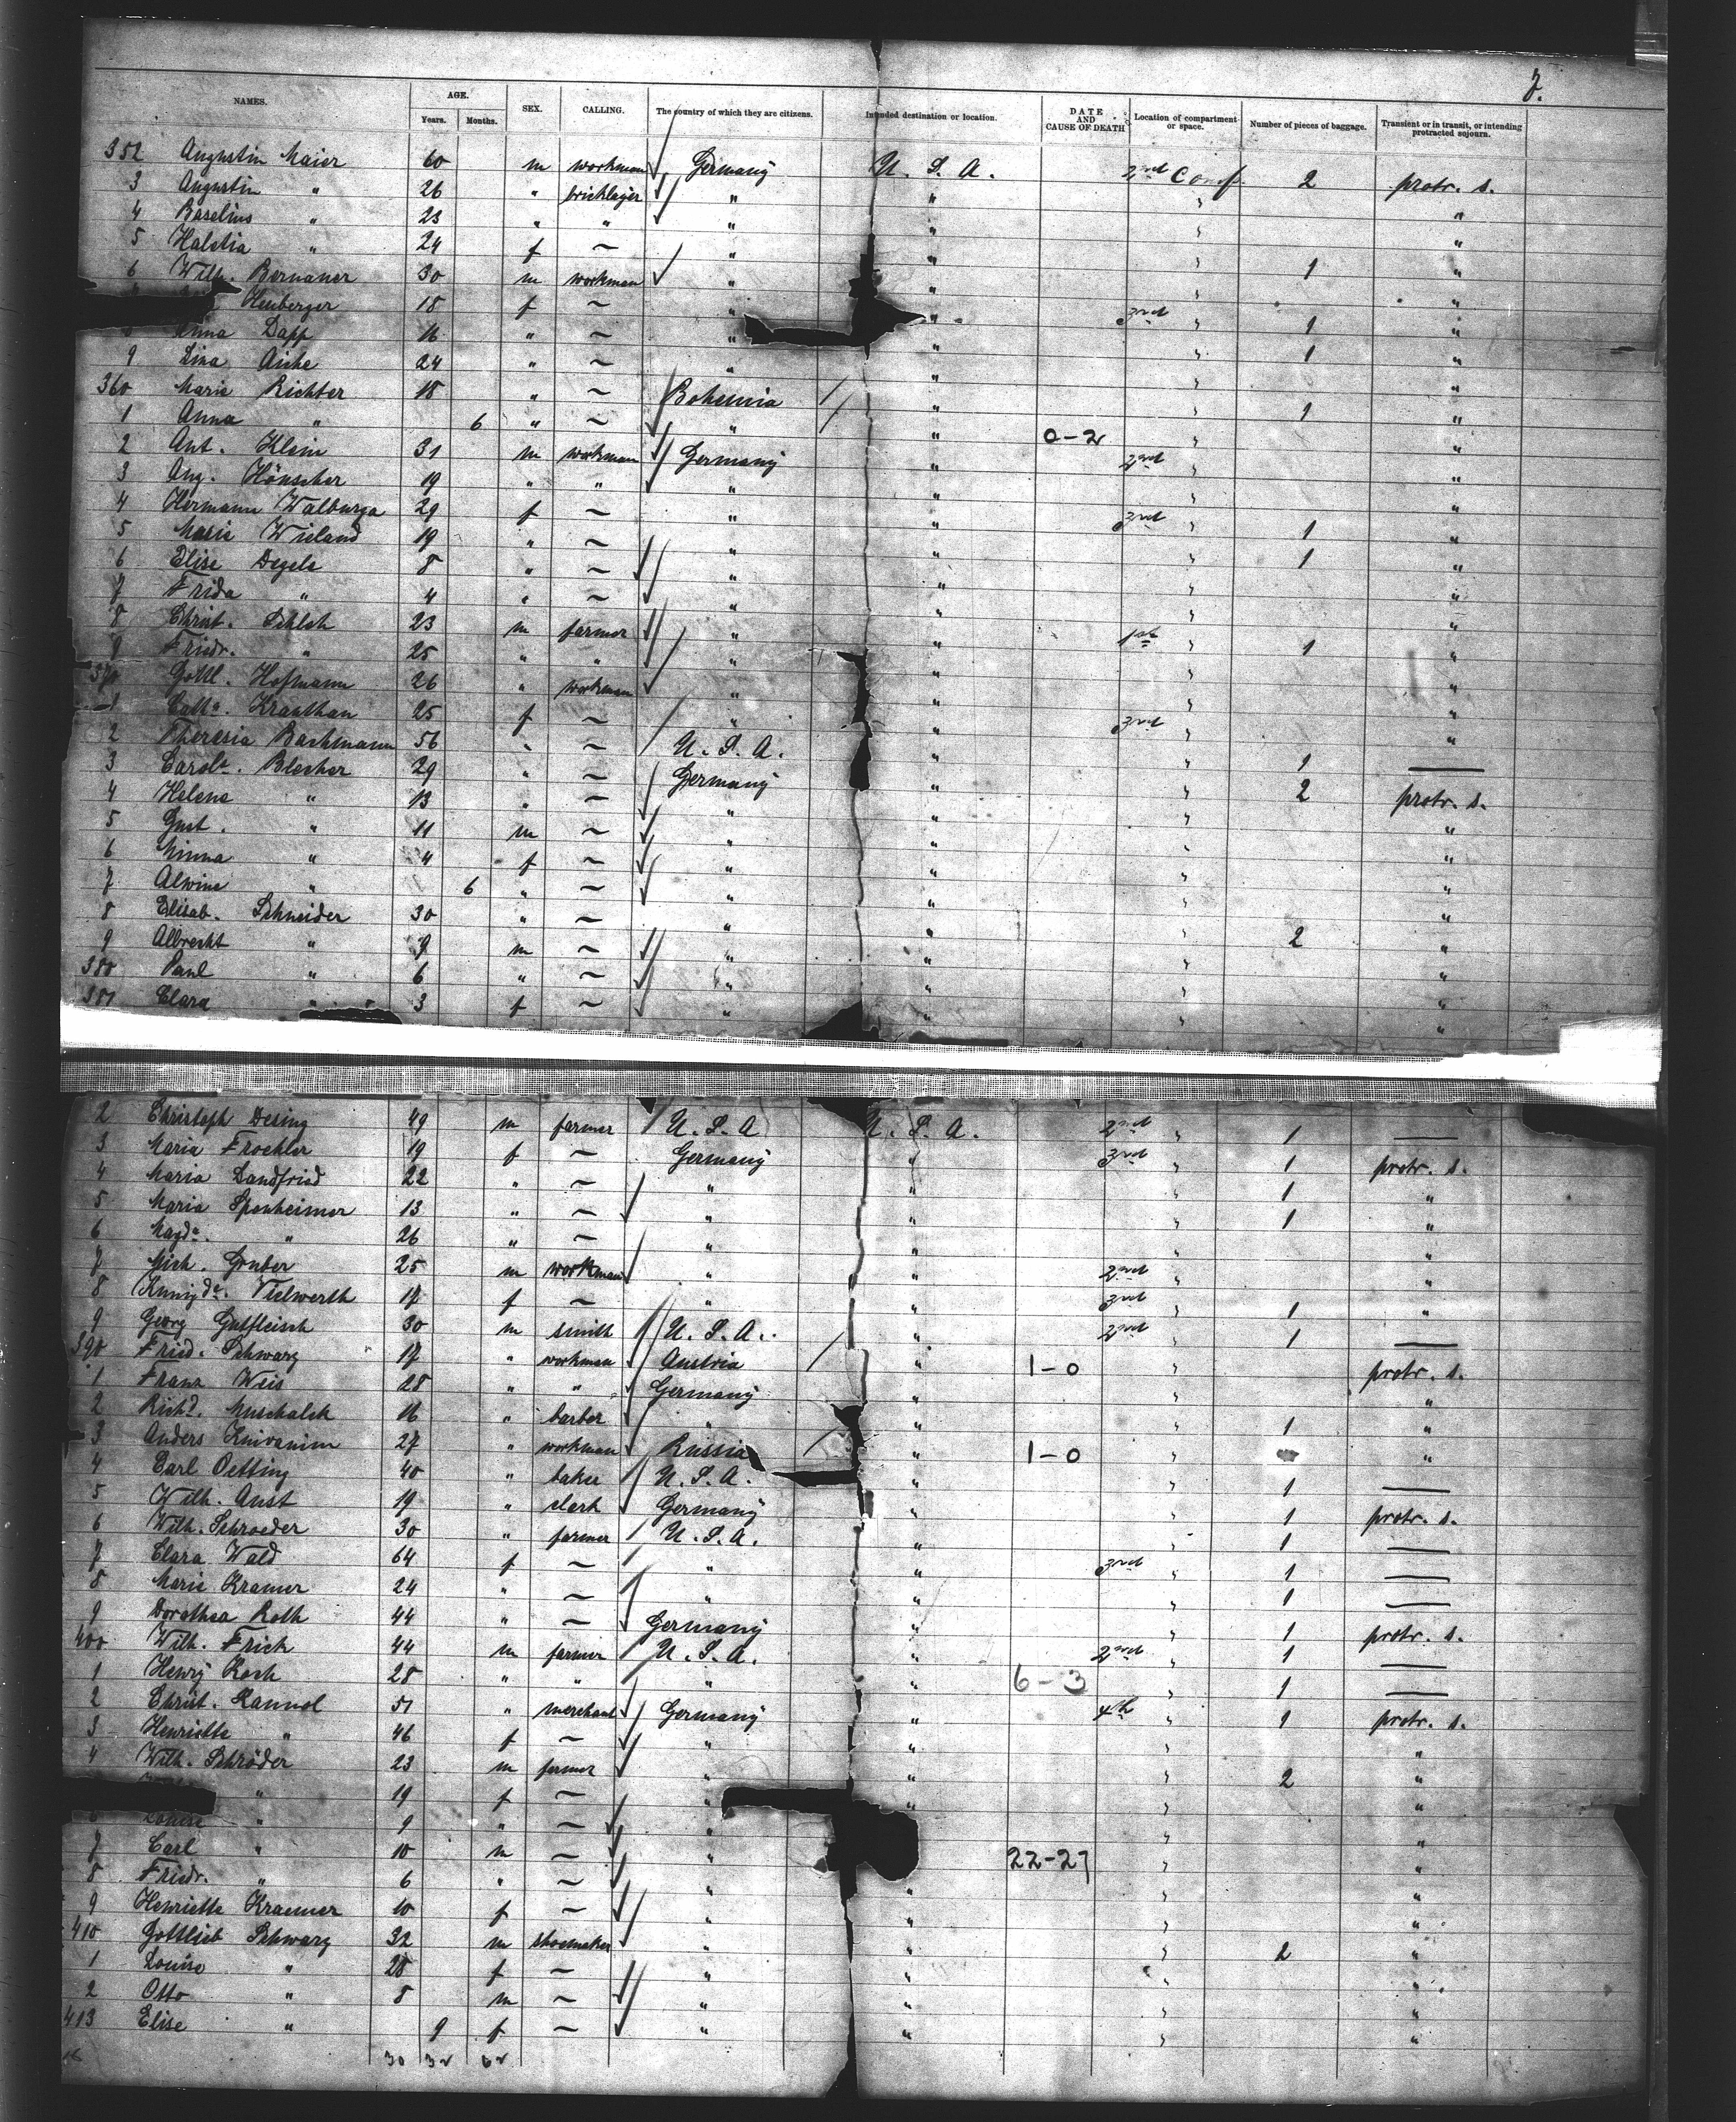 7.
NAMES. AGE. Years. Months. SEX. CALLING. The country of which they are citizens. Intended destination or location. DATE AND CAUSE OF DEATH Location of compartment or space. Number of pieces of baggage. Transient or in transit, or intending protracted sojourn.
352 Augustin Maier 60 m workman Germany U. S. A. 2nd Comp. 2 protr. s.
3 Augustin " 26 " bricklayer " " " "
4 Baselius " 23 " " " " " "
5 Halstia " 24 f ~ " " " "
6 Wilh. Bernauer 30 m workman " " " 1 "
Heuberger 18 f ~ " " 3rd " "
Anna Dapp 16 " ~ " " " 1 "
9 Lina Aiche 24 " ~ " " " 1 "
360 Marie Richter 18 " ~ Bohemia " " "
1 Anna " 6 " ~ " " " 1 "
2 Ant. Klein 31 m workman Germany " 0-2 2nd " "
3 Aug. Hönscher 19 " " " " " "
4 Hermann Walburga 29 f ~ " " 3rd " "
5 Marie Wieland 19 " ~ " " " 1 "
6 Elise Degele 8 " ~ " " " 1 "
7 Frida " 4 " ~ " " " "
8 Christ. Schleh 23 m farmer " " 1st " "
9 Friedr. " 25 " " " " " 1 "
370 Gottl. Hofmann 26 " workman " " " "
1 Catha. Krauthan 25 f ~ " " 3rd " "
2 Theresia Bachmann 56 " ~ U. S. A. " " 1 —
3 Carola. Blecher 29 " ~ Germany " " 2 protr. s.
4 Helene " 13 " ~ " " " "
5 Gust. " 11 m ~ " " " "
6 Minna " 4 f ~ " " " "
7 Alwine " 6 " ~ " " " "
8 Elisab. Schneider 30 " ~ " " " 2 "
9 Albrecht " 9 m ~ " " " "
380 Paul " 6 " ~ " " " "
381 Clara " 3 f ~ " " " "
2 Christoph Desing 49 m farmer U. S. A U. S. A. 2nd " 1 —
3 Maria Froehler 19 f ~ Germany " 3rd " 1 protr. s.
4 Maria Landfried 22 " ~ " " " 1 "
5 Maria Sponheimer 13 " ~ " " " 1 "
6 Magda. " 26 " ~ " " " "
7 Mich. Gruber 25 m workman " " 2nd " "
8 Kunigda. Vielwerth 17 f ~ " " 3rd " 1 "
9 Georg Gutfleisch 30 m smith U. S. A. " 2nd " 1 —
390 Fried. Schwarz 17 " workman Austria " 1-0 " protr. s.
1 Franz Weis 28 " " Germany " " "
2 Richd. Muschalek 16 " barber " " " 1 "
3 Anders Knivanim 27 " workman Russia " 1-0 " "
4 Carl Oetting 40 " baker U. S. A. " " 1 —
5 Wilh. Aust 19 " clerk Germany " " 1 protr. s.
6 Wilh. Schroeder 30 " farmer U. S. A. " " 1 —
7 Clara Wald 64 f ~ " " 3rd " 1 —
8 Marie Kramer 24 " ~ " " " 1 —
9 Dorothea Roth 44 " ~ Germany " " 1 protr. s.
400 Wilh. Frick 44 m farmer U. S. A. " 2nd " 1 —
1 Henry Koch 28 " " " " 6-3 " 1 —
2 Christ. Rannol 51 " merchant Germany " 4th " 1 protr. s.
3 Henriette " 46 f ~ " " " "
4 Wilh. Schröder 23 m farmer " " " 2 "
" 19 f ~ " " " "
6 Louise " 9 " ~ " " "
7 Carl " 10 m ~ " 22-27 " "
8 Friedr. " 6 " ~ " " " "
9 Henriette Kraemer 10 f ~ " " " "
410 Gottlieb Schwarz 32 m shoemaker " " " 2 "
1 Louise " 28 f ~ " " " "
2 Otto " 8 m ~ " " " "
413 Elise " 9 f ~ " " " "
30 32 62